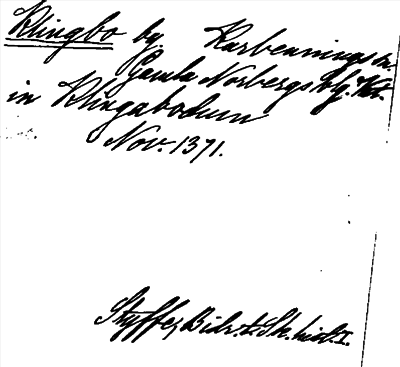 Klingbo by Karbennings sn.
Gamla Norbergs bg. Vstm.
in Klingabodum
Nov. 1371.
Styffe, Bidr. t. Sk. hist. I.